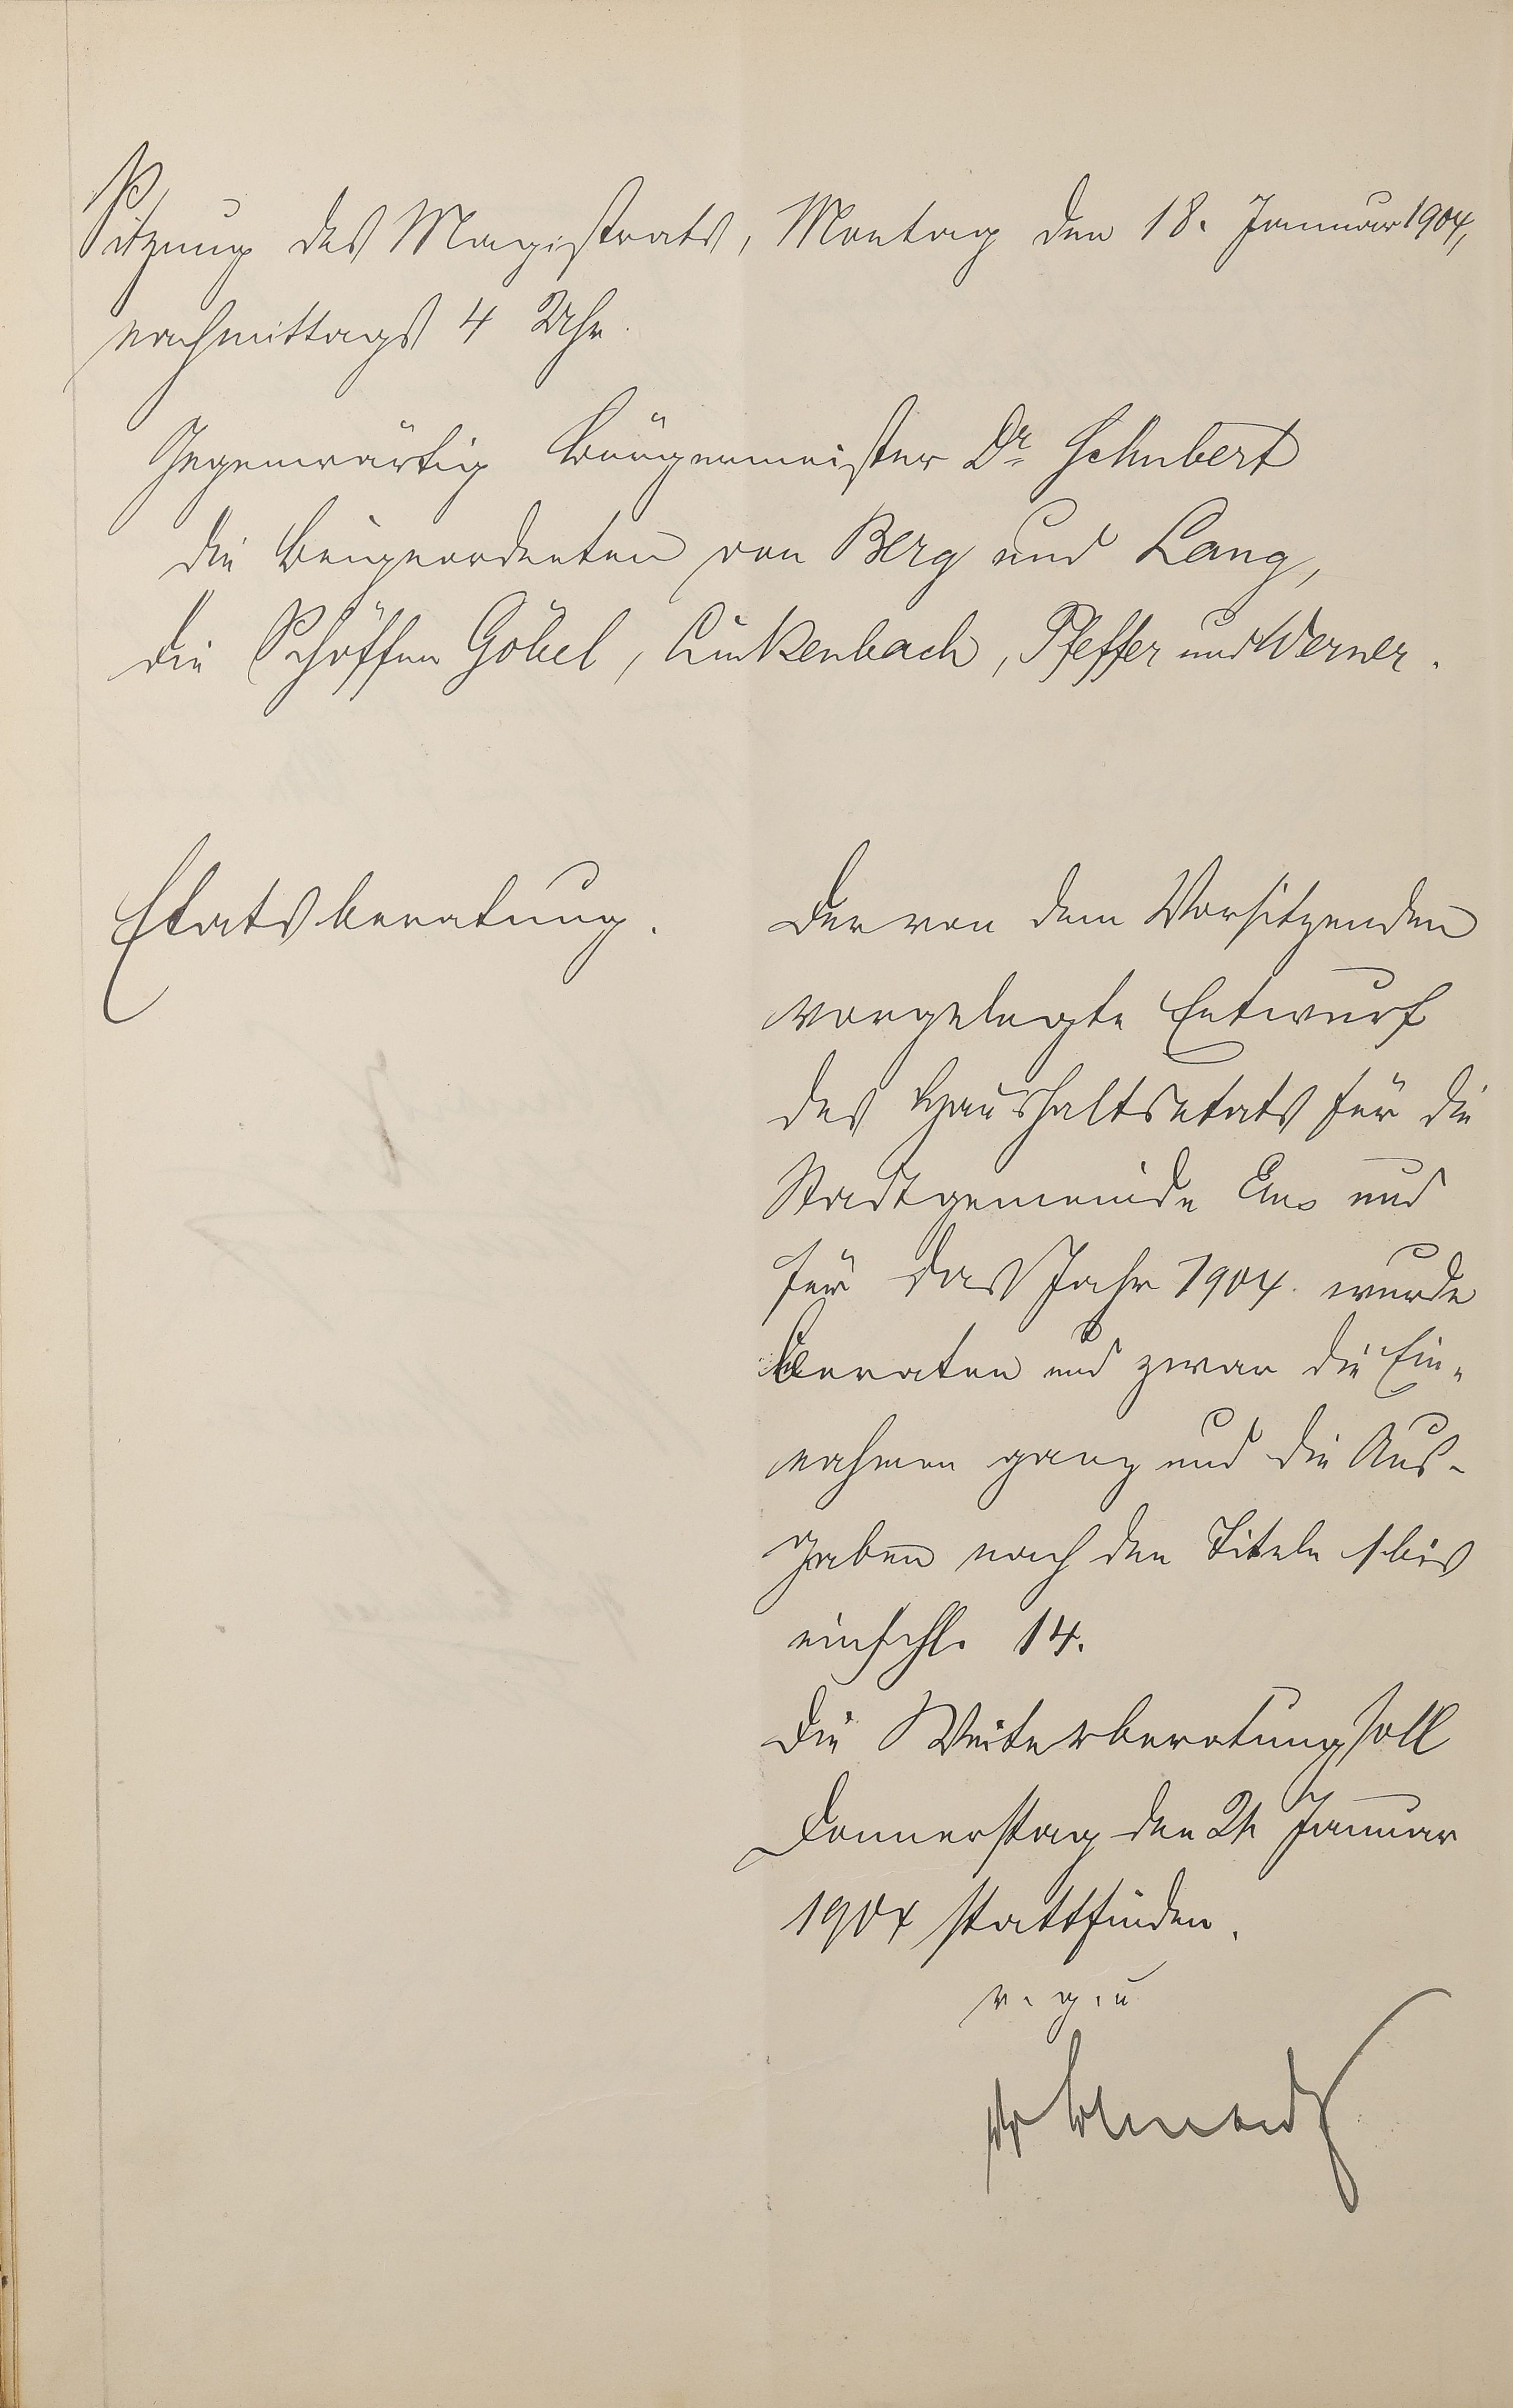 Sitzung des Magistrats, Montag den 18. Januar 1904,
nachmittags 4 Uhr.
Gegenwärtig Bürgermeister Dr Schubert
die Beigeordneten von Berg und Lang,
die Schöffen Göbel, Linkenbach, Pfeffer und Werner.
Etatsberatung.
Der von dem Vorsitzenden
vorgelegte Entwurf
des Haushaltsetats für die
Stadtgemeinde Ems und
für das Jahr 1904. wurde
beraten und zwar die Ein-
nahmen ganz und die Aus-
gaben nach den Titeln 1 bis
einschl. 14.
Die Weiterberatung soll
Donnerstag den 21 Januar
1904 stattfinden.
v. g. u